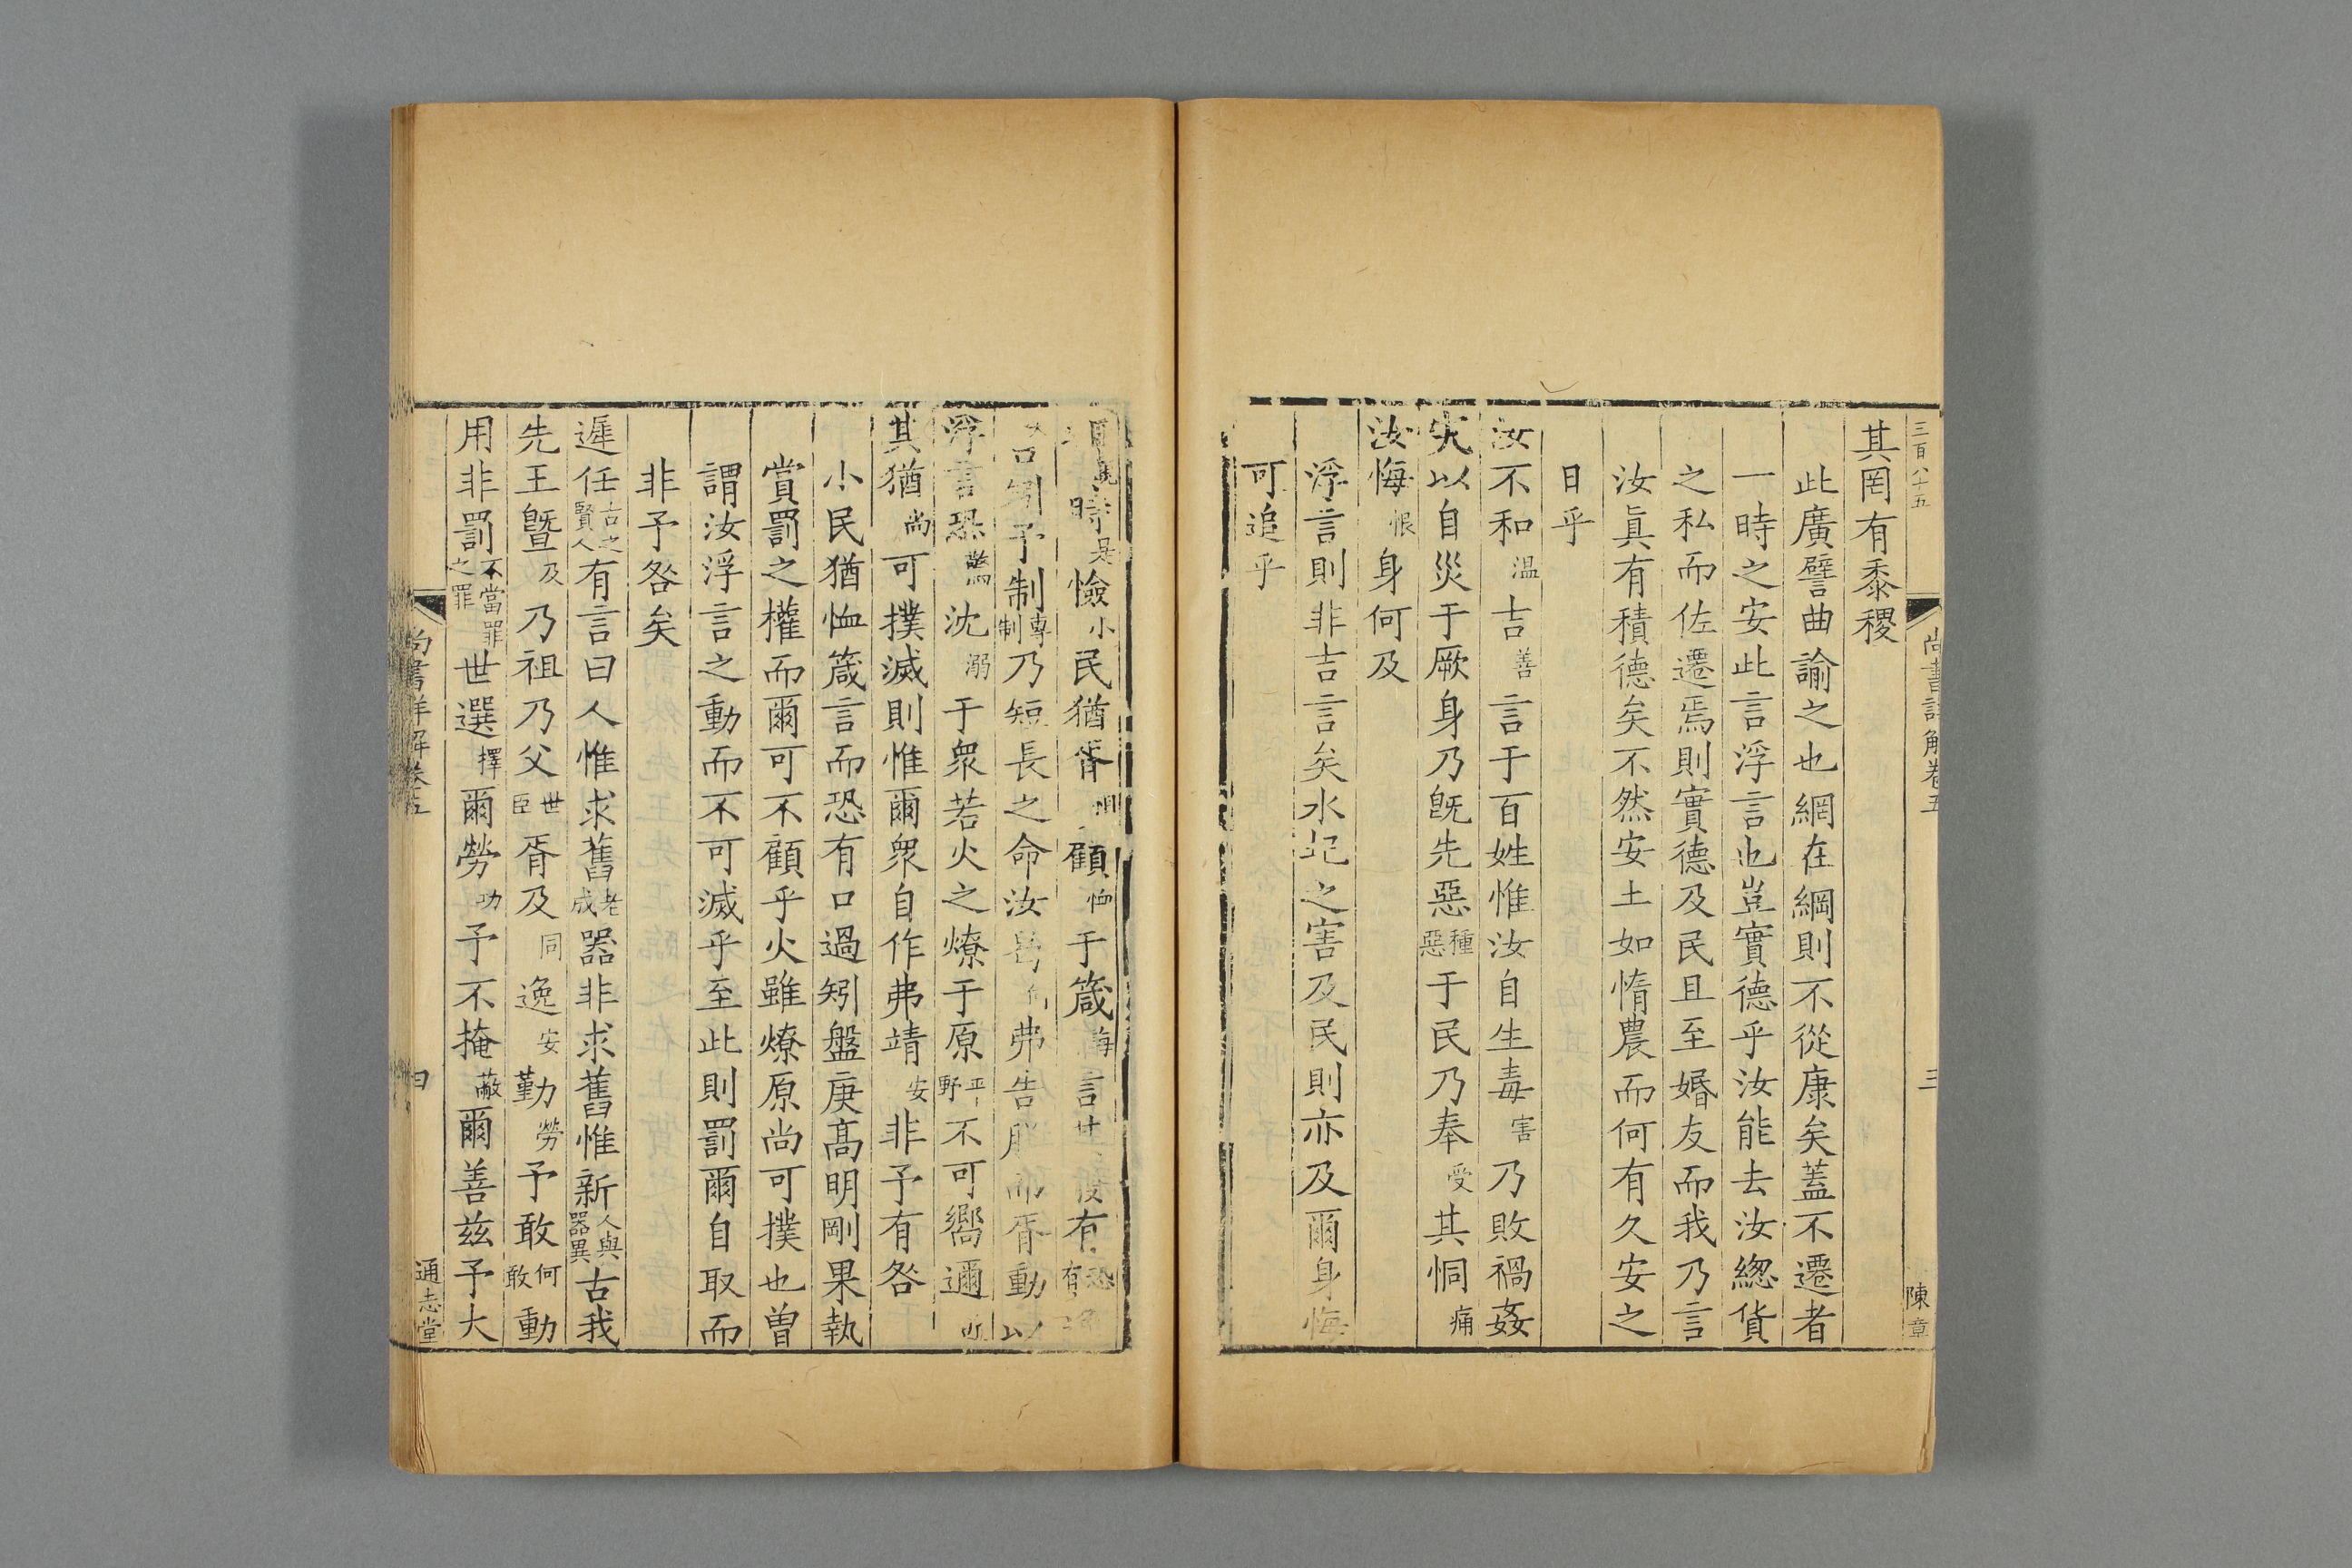 三百八十五
尚書詳解卷五
三
陳章
其罔有黍稷
此廣譬曲諭之也網在綱則不從康矣蓋不遷者
一時之安此言浮言也豈實德乎汝能去汝緫貨
之私而佐遷焉則實德及民且至婚友而我乃言
汝眞有積德矣不然安土如惰農而何有久安之
日乎
汝不和溫吉善言于百姓惟汝自生毒害乃敗禍姦
宄以自災于厥身乃旣先惡種惡于民乃奉受其恫痛
汝悔恨身何及
浮言則非吉言矣水圮之害及民則亦及爾身悔
可追乎
時是憸小民猶胥相顧恤于箴誨言其發有恐有
矧予制專制乃短長之命汝曷何弗告朕而胥動以
浮言恐驚沈溺于衆若火之燎于原平野不可嚮邇近
其猶尚可撲滅則惟爾衆自作弗靖安非予有咎
小民猶恤箴言而恐有口過矧盤庚高明剛果執
賞罰之權而爾可不顧乎火雖燎原尚可撲也曽
謂汝浮言之動而不可滅乎至此則罰爾自取而
非予咎矣
遲任古之賢人有言曰人惟求舊老成器非求舊惟新人與器異古我
先王曁及乃祖乃父世臣胥及同逸安勤勞予敢何敢動
用非罰不當罪之罪世選擇爾勞功予不掩蔽爾善玆予大
尚書詳解卷五
四
通志堂